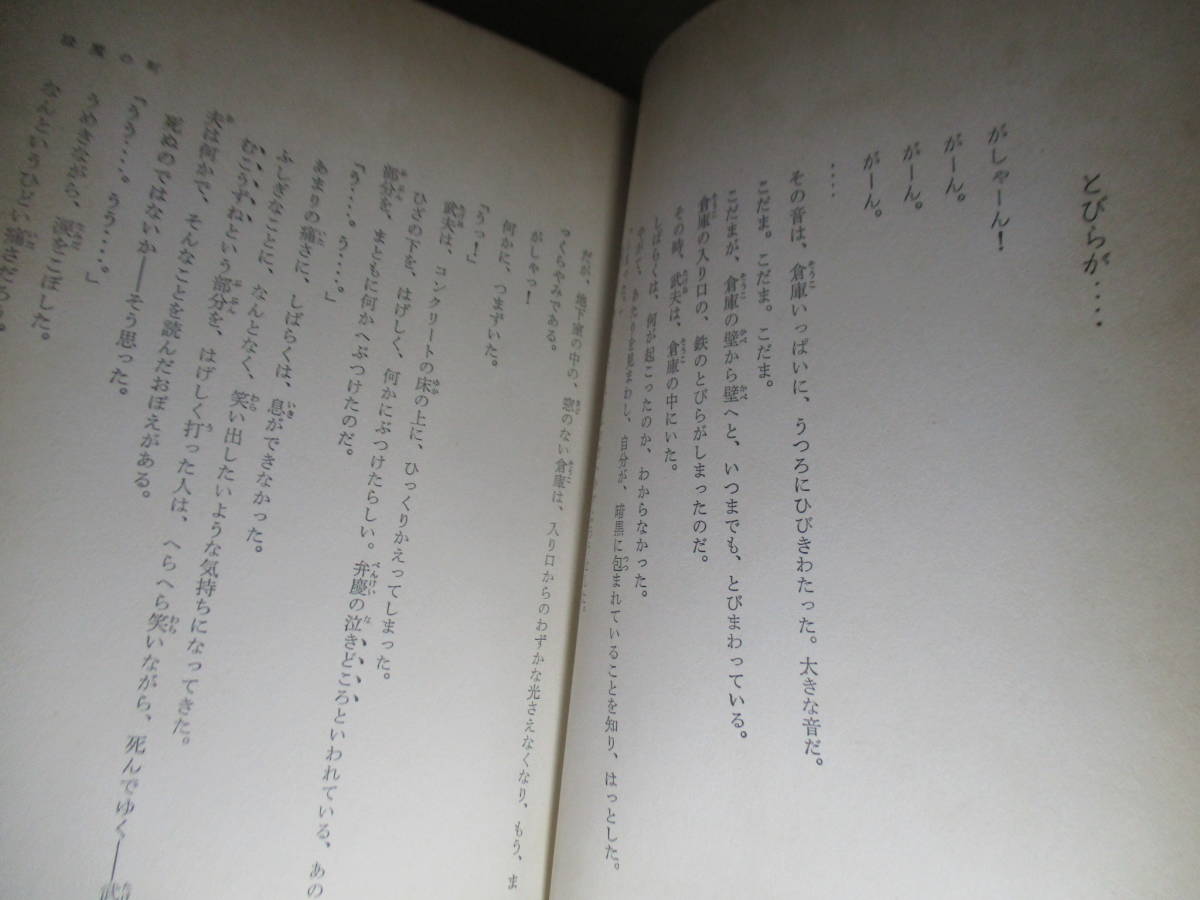 とびらが‥‥
がしゃーん!
がーん。
がーん。
がーん。
‥‥
その音は、倉庫いっぱいに、うつろにひびきわたった。大きな音だ。
こだま。こだま。こだま。
こだまが、倉庫の壁から壁へと、いつまでも、とびまわっている。
倉庫の入り口の、鉄のとびらがしまったのだ。
その時、武夫は、倉庫の中にいた。
しばらくは、何が起こったのか、わからなかった。
やがて、あたりを見まわし、自分が、暗黒に包まれていることを知り、はっとした。
だが、地下室の中の、窓のない倉庫は、入り口からのわずかな光さえなくなり、もう、ま
っくらやみである。
がしゃっ!
何かに、つまずいた。
「うっ!」
武夫は、コンクリートの床の上に、ひっくりかえってしまった。
ひざの下を、はげしく、何かにぶつけたらしい。弁慶の泣きどころといわれている、あの
部分を、まともに何かへぶつけたのだ。
「う‥‥。う‥‥。」
あまりの痛さに、しばらくは、息ができなかった。
ふしぎなことに、なんとなく、笑い出したいような気持ちになってきた。
むこうずねという部分を、はげしく打った人は、へらへら笑いながら、死んでゆく――武
夫は何かで、そんなことを読んだおぼえがある。
死ぬのではないか――そう思った。
「うう‥‥。うう‥‥。」
うめきながら、涙をこぼした。
なんというひどい痛さだろう。